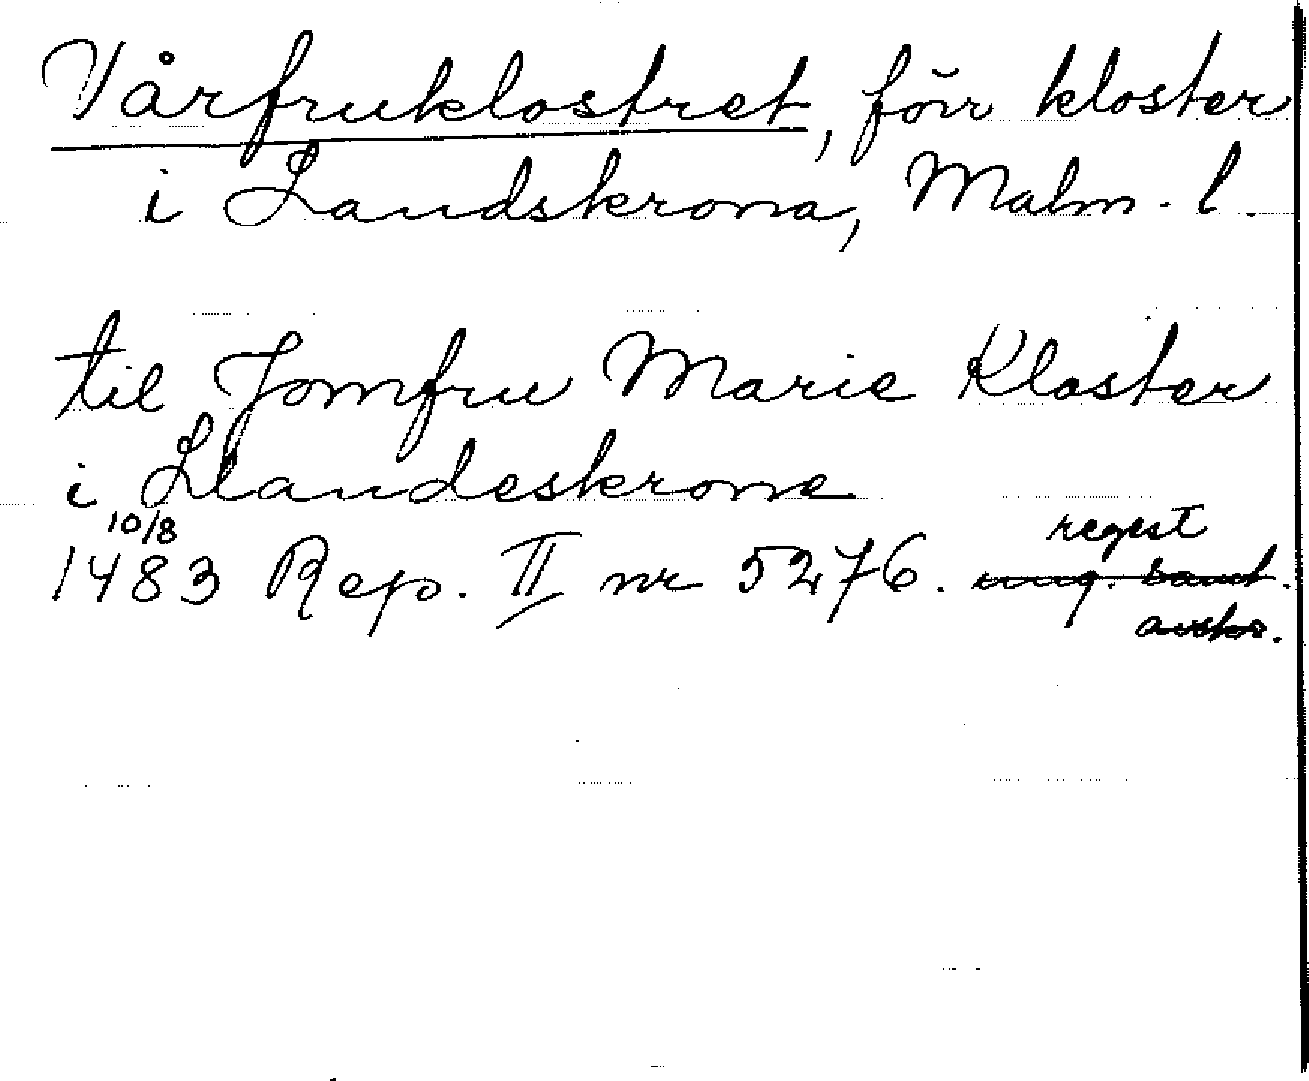 Vårfruklostret, förr kloster
i Landskrona, Malm. l.
til Jomfru Marie Kloster
i Llandeskrone
10/8
1483 Rep. II nr 5276. regest
ung. samt.
avskr.